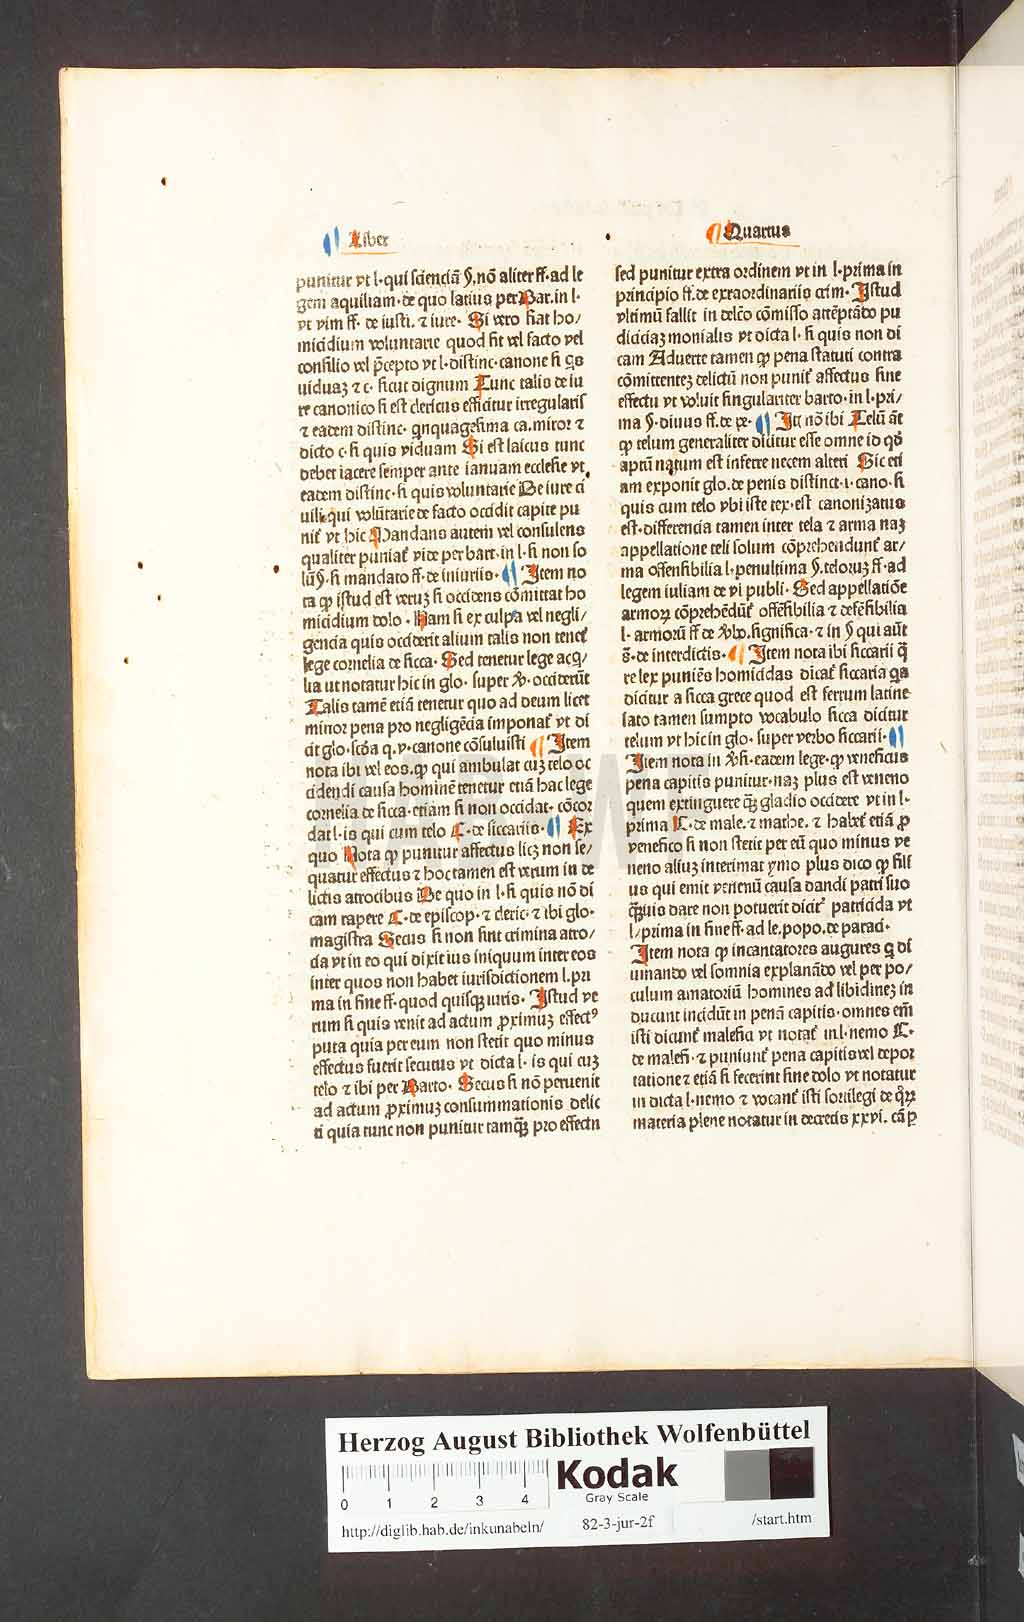 Liber
punitur vt l. qui scienciā §. nō aliter ff. ad le
gem aquiliam. de quo latius per Bar. in l.
vt vim ff. de iusti. ⁊ iure. Si vero fiat ho/
micidium voluntarie quod fit vel facto vel
consilio vel p̄cepto vt l. distinc. canone si q̄s
viduaꝫ ⁊ c. sicut dignum Tunc talis de iu
re canonico si est clericus efficitur irregularis
⁊ eadem distinc. qnquagesima ca. miror ⁊
dicto c. si quis viduam Si est laicus tunc
debet iacere semper ante ianuam ecclesie vt
eadem distinc. si quis voluntarie De iure ci
uili qui volūtarie de facto occidit capite pu
nit᷑ vt hic Mandans autem vel consulens
qualiter puniat᷑ vide per bart. in l. si non so
lū §. si mandato ff. de iniuriis. ¶ Item no
ta ꝙ istud est veruꝫ si occidens cōmittat ho
micidium dolo. Nam si ex culpa vel negli/
gencia quis occiderit alium talis non tenet᷑
lege cornelia de sicca. Sed tenetur lege acq̄/
lia ut notatur hic in glo. super ꝟ. occiderūt
Talis tamē etiā tenetur quo ad deum licet
minor pena pro negligēcia imponat᷑ vt di
cit glo. scōa q. v. canone cōsuluisti ¶ Item
nota ibi vel eos. ꝙ qui ambulat cuꝫ telo oc
cidendi causa hominē tenetur etiā hac lege
cornelia de sicca. etiam si non occidat. cōcor
dat l. is qui cum telo C. de siccariis. ¶ Ex
quo Nota ꝙ punitur affectus licꝫ non se/
quatur effectus ⁊ hoc tamen est verum in de
lictis atrocibus De quo in l. si quis nō di
cam rapere C. de episcop. ⁊ cleric. ⁊ ibi glo.
magistra Secus si non sint crimina atro/
cia vt in eo qui dixit ius iniquum inter eos
inter quos non habet iurisdictionem l. pri
ma in fine ff. quod quisqꝫ iuris. Istud ve
rum si quis venit ad actum ꝓximuꝫ effectꝰ
puta quia per eum non stetit quo minus
effectus fuerit secutus vt dicta l. is qui cuꝫ
telo ⁊ ibi per Barto. Secus si nō peruenit
ad actum ꝓximuꝫ consummationis delic
ti quia tunc non punitur tamqꝫ pro effectu
¶ Quartus
sed punitur extra ordinem vt in l. prima in
principio ff. de extraordinariis crim. Istud
vltimū fallit in delc̄o cōmisso attēptādo pu
diciciaꝫ monialis vt dicta l. si quis non di
cam Aduerte tamen ꝙ pena statuti contra
cōmittenteꝫ delictū non punit᷑ affectus sine
effectu vt voluit singulariter barto. in l. pri/
ma §. diuus ff. de
ꝙ telum generaliter dicitur esse omne id qd̄
aptū natum est inferre necem alteri Sic eti
am exponit glo. de penis distinct. i. cano. si
quis cum telo vbi iste tex. est canonizatus
est. differencia tamen inter tela ⁊ arma naꝫ
appellatione teli solum cōprehendunt᷑ ar/
ma offensibilia l. penultima §. teloruꝫ ff. ad
legem iuliam de vi publi. Sed appellatiōe
armoꝝ cōprehēdūt᷑ offēsibilia ⁊ defēsibilia
l. armorū ff. de ꝟbo. significa. ⁊ in § qui aūt
s̄. de interdictis. ¶ Item nota ibi siccarii q̄
re lex puniēs homicidas dicat᷑ siccaria q̄a
dicitur a sicca grece quod est ferrum latine
lato tamen sumpto vocabulo sicca dicitur
telum vt hic in glo. super verbo siccarii. ¶
Item nota in ꝟsi. eadem lege. ꝙ veneficus
pena capitis punitur. naꝫ plus est veneno
quem extinguere qꝫ gladio occidere vt in l.
prima C. de male. ⁊ mathe. ⁊ habet᷑ etiā ꝓ
venefico si non stetit per eū quo minus ve
neno aliuꝫ interimat ymo plus dico ꝙ fili
us qui emit venenū causa dandi patri suo
qꝫuis dare non potuerit dicit᷑ patricida vt
l. prima in fine ff. ad le. popo. de parad.
Item nota ꝙ incantatores augures q di
uinando vel somnia explanādo vel per po/
culum amatoriū homines ad libidineꝫ in
ducunt incidūt in penā capitis. omnes em̄
isti dicunt᷑ malefici vt notat᷑ in l. nemo C.
de malefi. ⁊ puniunt᷑ pena capitis vel depor
tatione ⁊ etiā si fecerint sine dolo vt notatur
in dicta l. nemo ⁊ vocant᷑ isti sortilegi de qꝝ
materia plene notatur in decretis xxvi. cā ꝑ
Herzog August Bibliothek Wolfenbüttel
0 1 2 3 4
Kodak
Gray Scale
http://diglib.hab.de/inkunabeln/ 82-3-jur-2f /start.htm